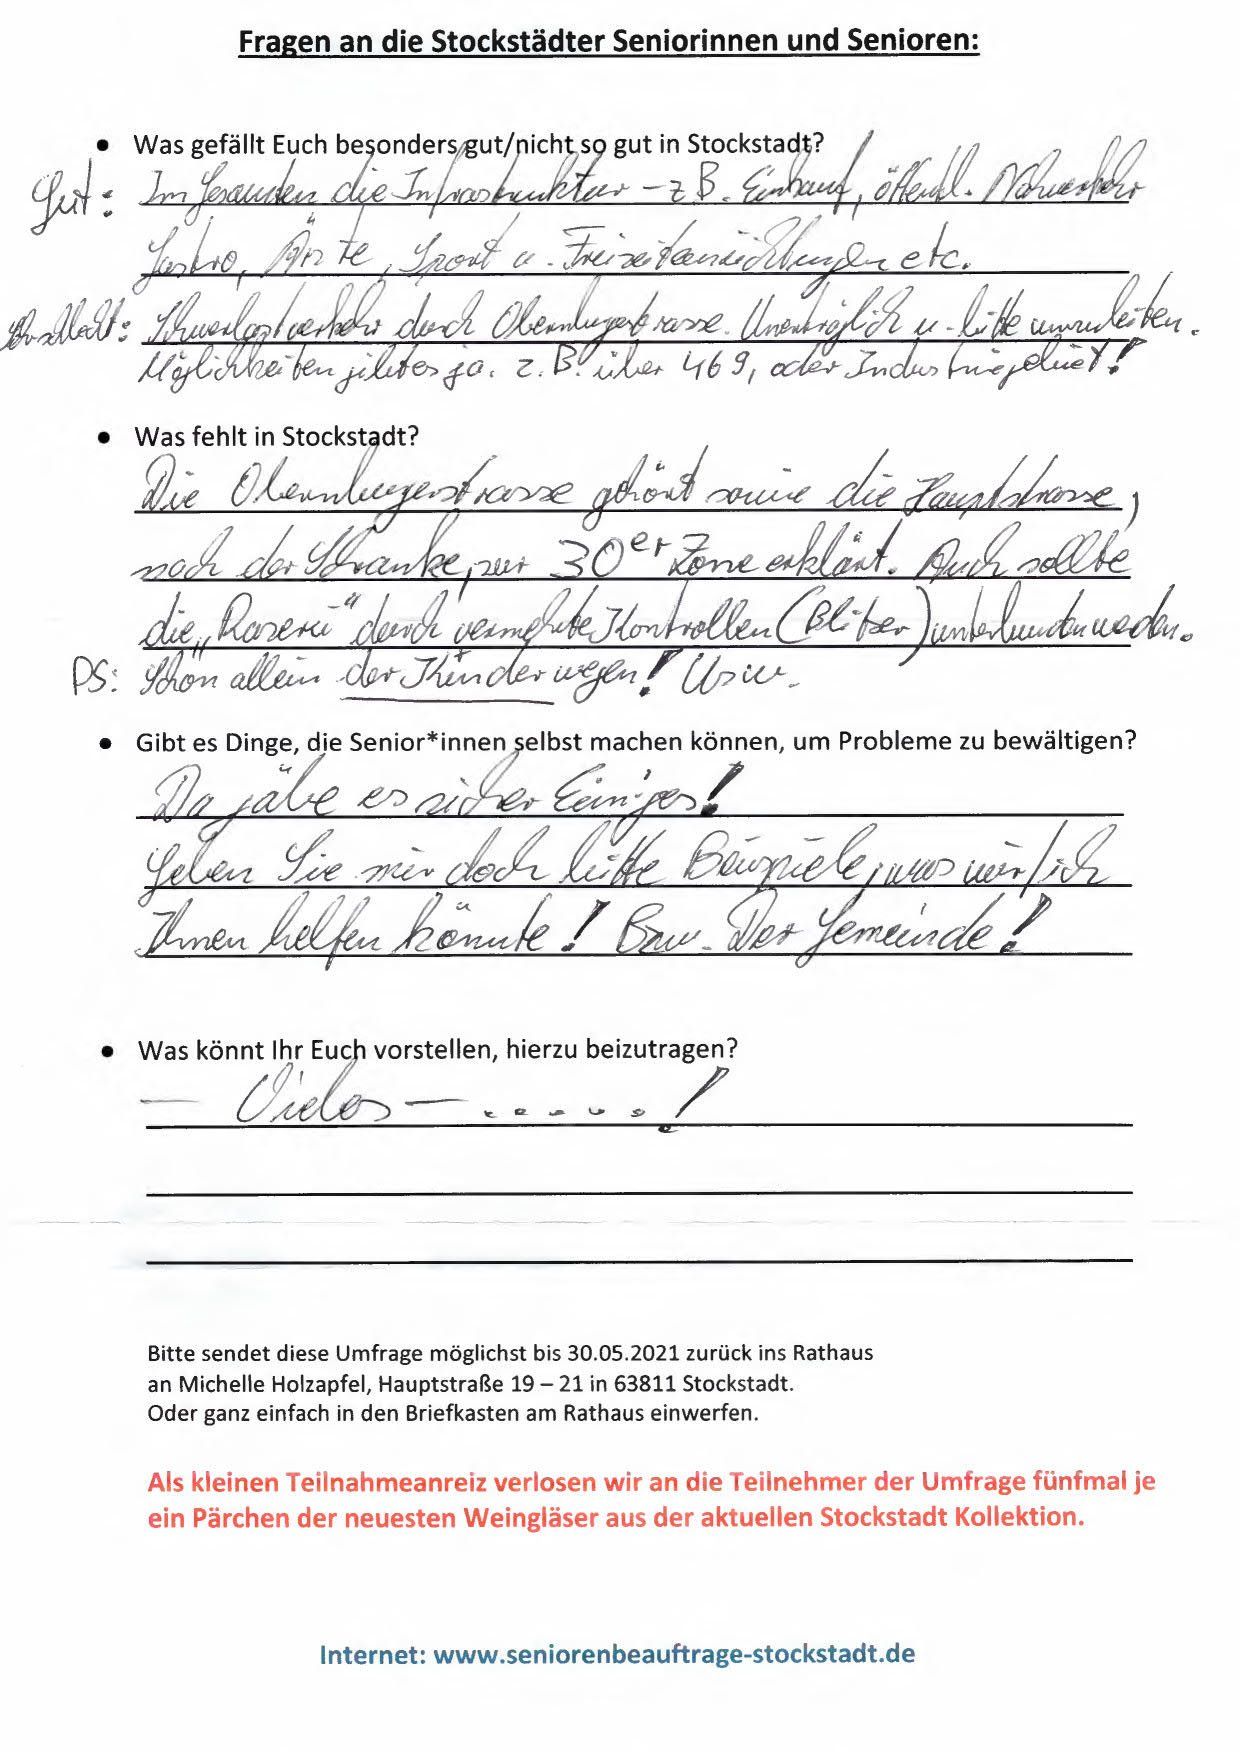 Fragen an die Stockstädter Seniorinnen und Senioren:
• Was gefällt Euch besonders gut/nicht so gut in Stockstadt?
Gut: Im Gesamten die Infrastruktur - z B. Einkauf, öffentl. Nahverkehr
Gastro, Ärzte, Sport u. Freizeiteinrichtungen etc.
Schlecht: Schwerlastverkehr durch Obernburgerstrasse. Unerträglich u. bitte umzuleiten.
Möglichkeiten gibt es ja. z. B. über 469, oder Industriegebiet!
• Was fehlt in Stockstadt?
Die Obernburgerstrasse gehört sowie die Hauptstrasse,
nach der Schranke, zur 30er Zone erklärt. Auch sollte
die „Raserei“ durch vermehrte Kontrollen (Blitzer) unterbunden werden.
PS: Schon allein der Kinder wegen! Usw.
• Gibt es Dinge, die Senior*innen selbst machen können, um Probleme zu bewältigen?
Da gäbe es sicher Einiges!
Geben Sie mir doch bitte Beispiele, was wir/ich
Ihnen helfen könnte! Bzw. Der Gemeinde!
• Was könnt Ihr Euch vorstellen, hierzu beizutragen?
— Vieles — . . . . . !
Bitte sendet diese Umfrage möglichst bis 30.05.2021 zurück ins Rathaus
an Michelle Holzapfel, Hauptstraße 19 – 21 in 63811 Stockstadt.
Oder ganz einfach in den Briefkasten am Rathaus einwerfen.
Als kleinen Teilnahmeanreiz verlosen wir an die Teilnehmer der Umfrage fünfmal je
ein Pärchen der neuesten Weingläser aus der aktuellen Stockstadt Kollektion.
Internet: www.seniorenbeauftrage-stockstadt.de